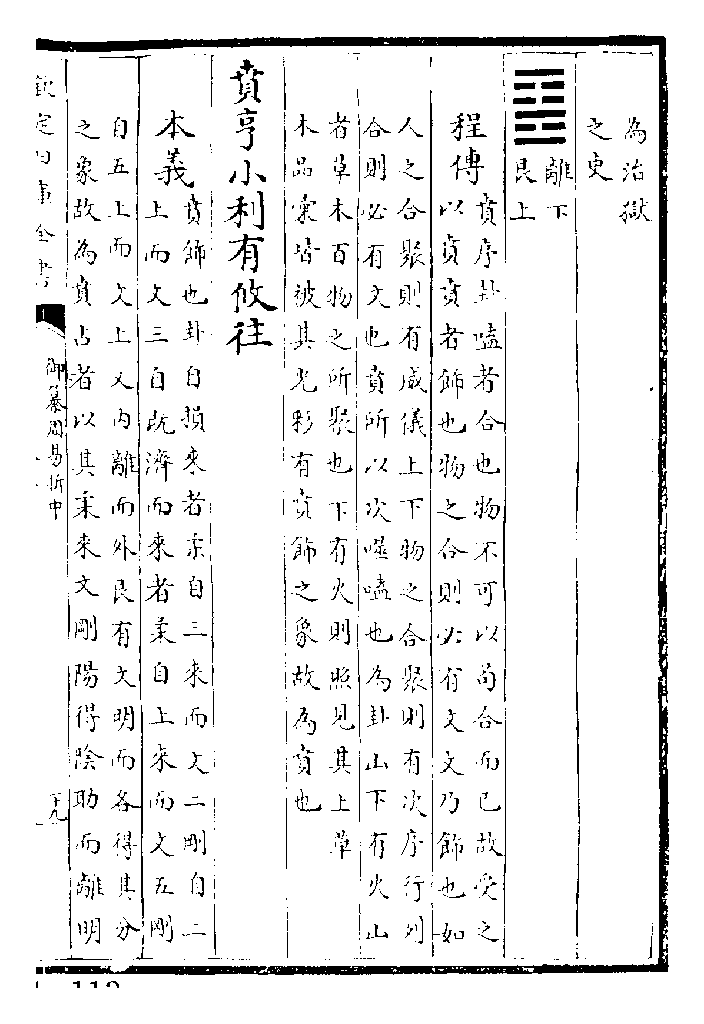 為治獄
之吏
離下
艮上
程傳
賁序卦嗑者合也物不可以苟合而已故受之
以賁賁者飾也物之合則必有文文乃飾也如
人之合聚則有威儀上下物之合聚則有次序行列
合則必有文也賁所以次噬嗑也為卦山下有火山
者草木百物之所聚也下有火則照見其上草
木品彙皆被其光彩有賁飾之象故為賁也
賁亨小利有攸往
本義
賁飾也卦自損來者柔自三來而文二剛自二
上而文三自既濟而來者柔自上來而文五剛
自五上而文上又內離而外艮有文明而各得其分
之象故為賁占者以其柔來文剛陽得陰助而離明
欽定四庫全書
御纂周易折中
十九